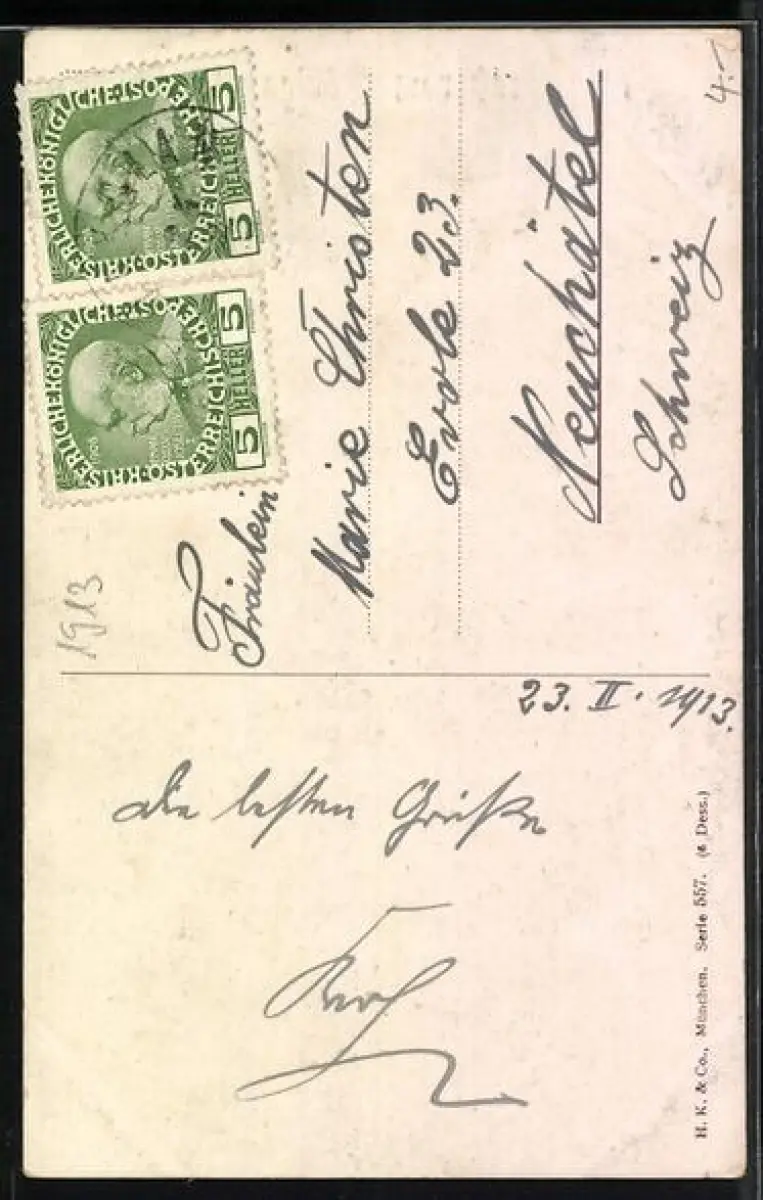 KAISERLICHEKÖNIGLICHE
ÖSTERREICHISCHEPOST
5 HELLER 5
KAISERLICHEKÖNIGLICHE
ÖSTERREICHISCHEPOST
5 HELLER 5
1908
4.
1913
Fräulein
Marie Christen
Evole 23.
Neuchâtel
Schweiz
23. II. 1913.
die besten Grüße
H. K. & Co., München. Serie 557. (6 Dess.)